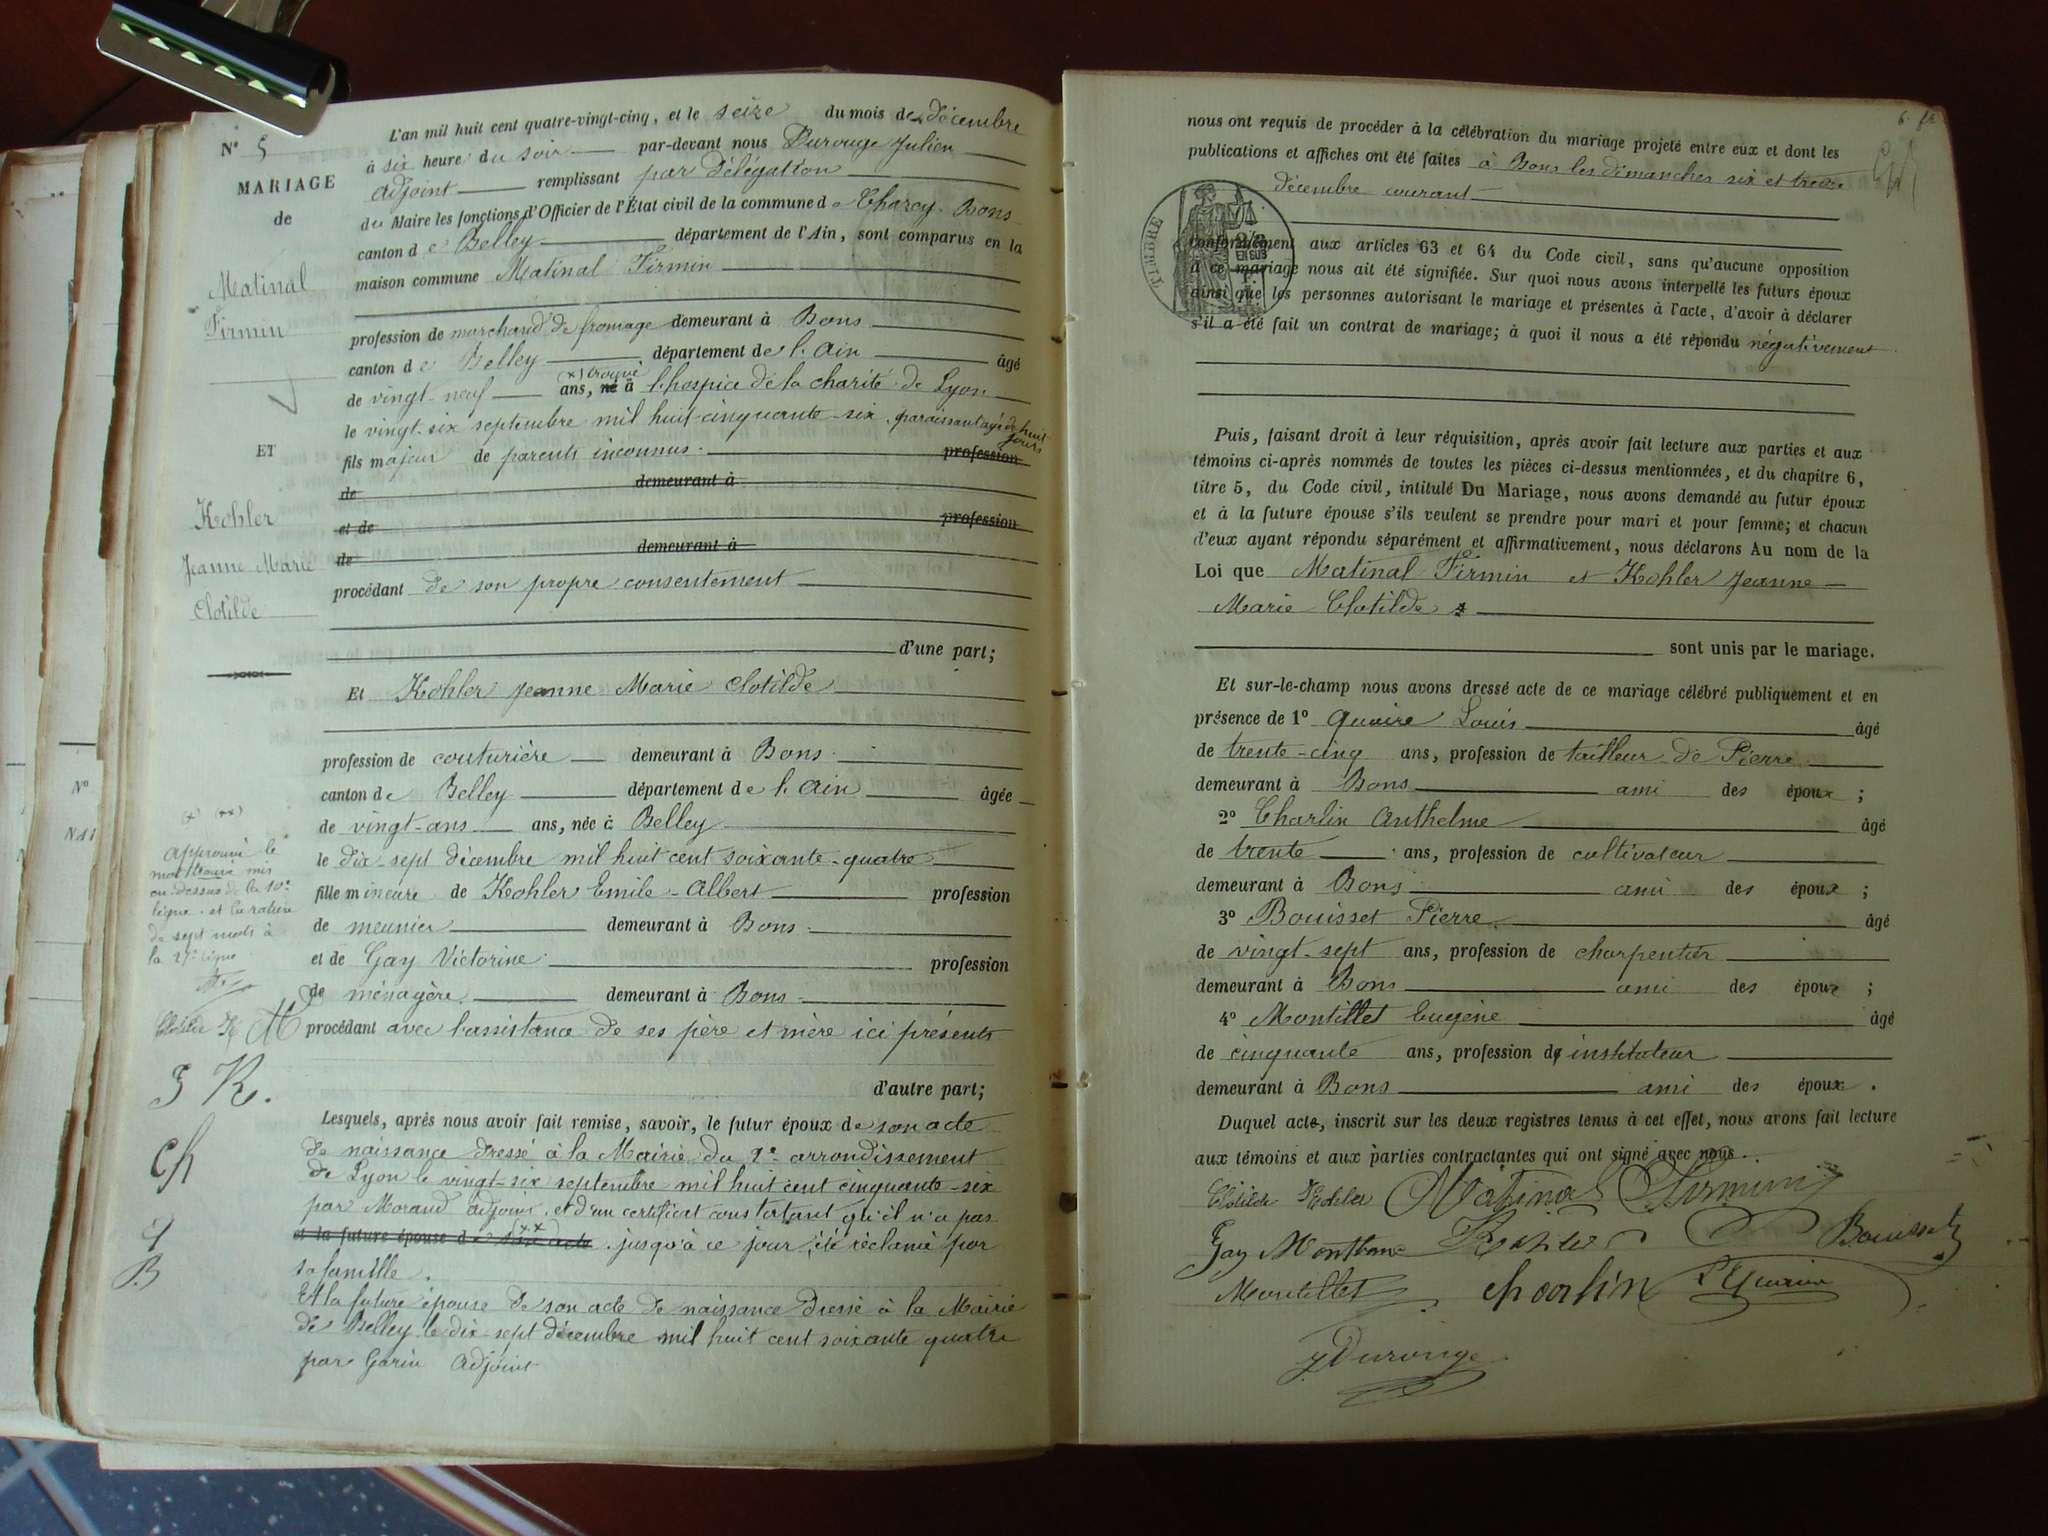 N° 5
MARIAGE
de
Matinal
Firmin
ET
Kohler
Jeanne Marie
Clotilde
(x) (xx)
approuvé le
mot trouvé mis
au-dessus de la 10e
ligne. et la rature
de sept mots à
la 27e ligne
Clotilde K M
J K.
Ch
q
B
N°
NAI
L'an mil huit cent quatre-vingt-cinq, et le seize du mois de décembre
à six heure du soir par-devant nous Durouge Julien
adjoint remplissant par délégation
du Maire les fonctions d'Officier de l'État civil de la commune de Tharcy-Bons
canton de Belley département de l'Ain, sont comparus en la
maison commune Matinal Firmin
profession de marchand de fromage demeurant à Bons
canton de Belley département de l'Ain âgé
x) trouvé
de vingt-neuf ans, né à l'hospice de la charité de Lyon
le vingt-six septembre mil huit cinquante-six, paraissant âgé de huit
jours
fils majeur de parents inconnus. profession
de demeurant à
et de profession
de demeurant à
procédant de son propre consentement
d'une part;
Et Kohler Jeanne Marie Clotilde
profession de couturière demeurant à Bons
canton de Belley département de l'Ain âgée
de vingt-ans ans, née à Belley
le dix-sept décembre mil huit cent soixante-quatre
fille mineure de Kohler Emile-Albert profession
de meunier demeurant à Bons
et de Gay Victorine profession
de ménagère demeurant à Bons
procédant avec l'assistance de ses père et mère ici présents
d'autre part;
Lesquels, après nous avoir fait remise, savoir, le futur époux de son acte
de naissance dressé à la Mairie du 2e arrondissement
de Lyon le vingt-six septembre mil huit cent cinquante-six
par Morand adjoint, et d'un certificat constatant qu'il n'a pas
et la future épouse de son acte (xx) jusqu'à ce jour, été réclamé par
sa famille.
Et la future épouse de son acte de naissance dressé à la Mairie
de Belley le dix-sept décembre mil huit cent soixante quatre
par Garin adjoint
nous ont requis de procéder à la célébration du mariage projeté entre eux et dont les
publications et affiches ont été faites à Bons les dimanches six et treize
décembre courant
TIMBRE
2/10
EN SUS
conformément aux articles 63 et 64 du Code civil, sans qu'aucune opposition
à ce mariage nous ait été signifiée. Sur quoi nous avons interpellé les futurs époux
ainsi que les personnes autorisant le mariage et présentes à l'acte, d'avoir à déclarer
s'il a été fait un contrat de mariage; à quoi il nous a été répondu négativement
Puis, faisant droit à leur réquisition, après avoir fait lecture aux parties et aux
témoins ci-après nommés de toutes les pièces ci-dessus mentionnées, et du chapitre 6,
titre 5, du Code civil, intitulé Du Mariage, nous avons demandé au futur époux
et à la future épouse s'ils veulent se prendre pour mari et pour femme; et chacun
d'eux ayant répondu séparément et affirmativement, nous déclarons Au nom de la
Loi que Matinal Firmin et Kohler Jeanne
Marie Clotilde
sont unis par le mariage.
Et sur-le-champ nous avons dressé acte de ce mariage célébré publiquement et en
présence de 1° Quaire Louis âgé
de trente-cinq ans, profession de tailleur de Pierre
demeurant à Bons ami des époux ;
2° Charlin Anthelme âgé
de trente ans, profession de cultivateur
demeurant à Bons ami des époux ;
3° Bouisset Pierre âgé
de vingt-sept ans, profession de charpentier
demeurant à Bons ami des époux ;
4° Montillet Eugène âgé
de cinquante ans, profession de instituteur
demeurant à Bons ami des époux.
Duquel acte, inscrit sur les deux registres tenus à cet effet, nous avons fait lecture
aux témoins et aux parties contractantes qui ont signé avec nous.
Clotilde Kohler Matinal Firmin
Gay Kohler Bouisset
Montillet Charlin
J Durouge